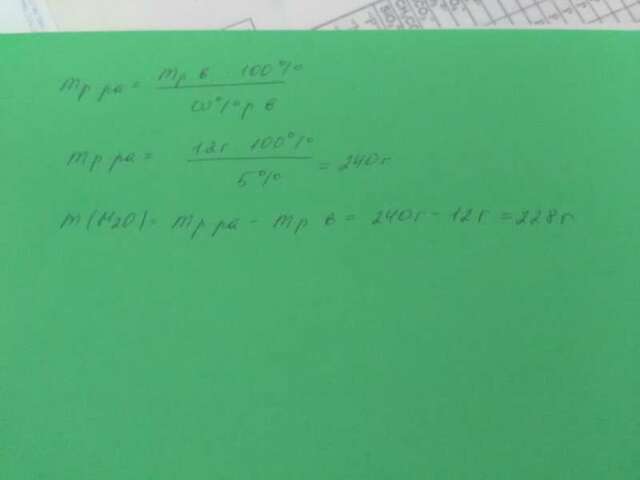 mр ра = mр в 100% / ω% р в
mр ра = 12г 100% / 5% = 240г
m(H2O) = mр ра - mр в = 240г - 12г = 228г